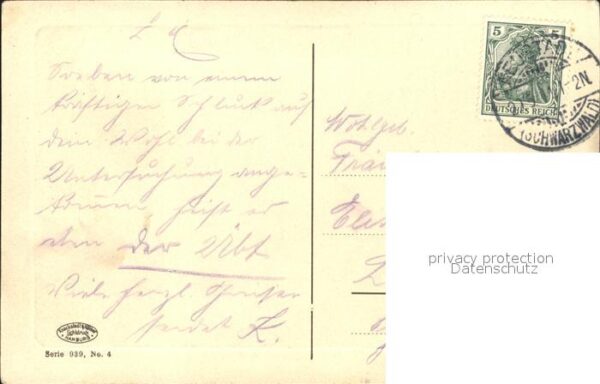 Soeben von einem
kräftigen Schluck auf
dem Wohl bei der
Untersuchung ange-
kommen heißt er
eben der Abt
Viele herzl. Grüsse
sendet K.
Serie 939, No. 4
5 5
DEUTSCHES REICH
1-2N
(SCHWARZWALD)
Wohlgeb.
Fräu
Elis
privacy protection
Datenschutz
HAMBURG